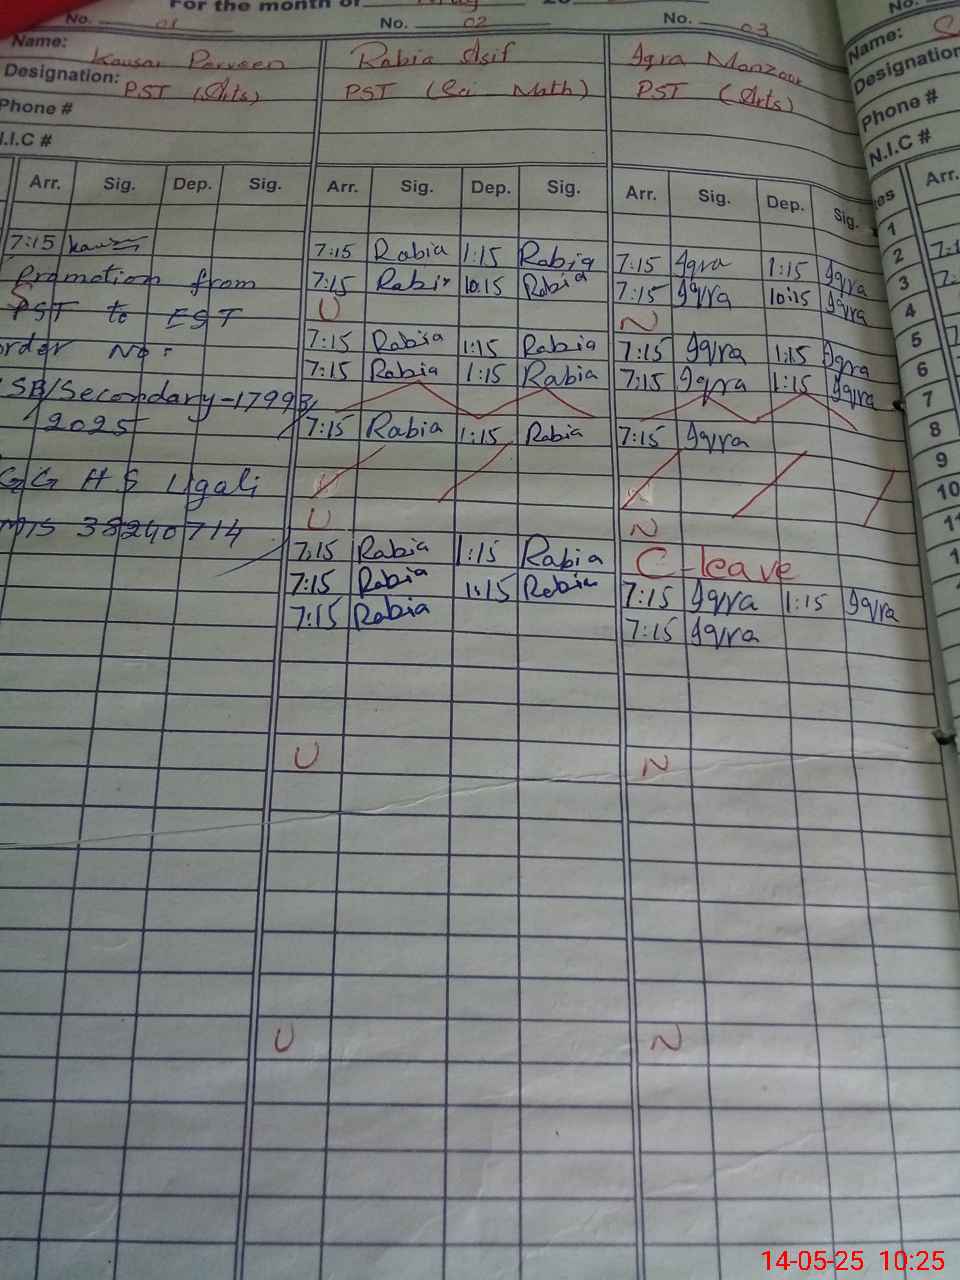 For the month of
No. 01 No. 02 No. 03 No.
Name: Kausar Parveen Rabia Asif Iqra Manzoor Name:
Designation: PST (Arts) PST (Sci Math) PST (Arts) Designation
Phone # Phone #
N.I.C # N.I.C #
Arr. Sig. Dep. Sig. Arr. Sig. Dep. Sig. Arr. Sig. Dep. Sig. Arr.
1
7:15 Rabia 1:15 Rabia 7:15 Iqra 1:15 Iqra 2
7:15 Rabia 10:15 Rabia 7:15 Iqra 10:15 Iqra 3
U N 4
7:15 Rabia 1:15 Rabia 7:15 Iqra 1:15 Iqra 5
7:15 Rabia 1:15 Rabia 7:15 Iqra 1:15 Iqra 6
7
7:15 Rabia 1:15 Rabia 7:15 Iqra 8
9
10
U N
7:15 Rabia 1:15 Rabia C-leave
7:15 Rabia 1:15 Rabia 7:15 Iqra 1:15 Iqra
7:15 Rabia 7:15 Iqra
U N
U N
7:15
Promotion from
PST to EST
order No:
SB/Secondary-17993/
2025
GGHS Ugali
38240714
14-05-25 10:25